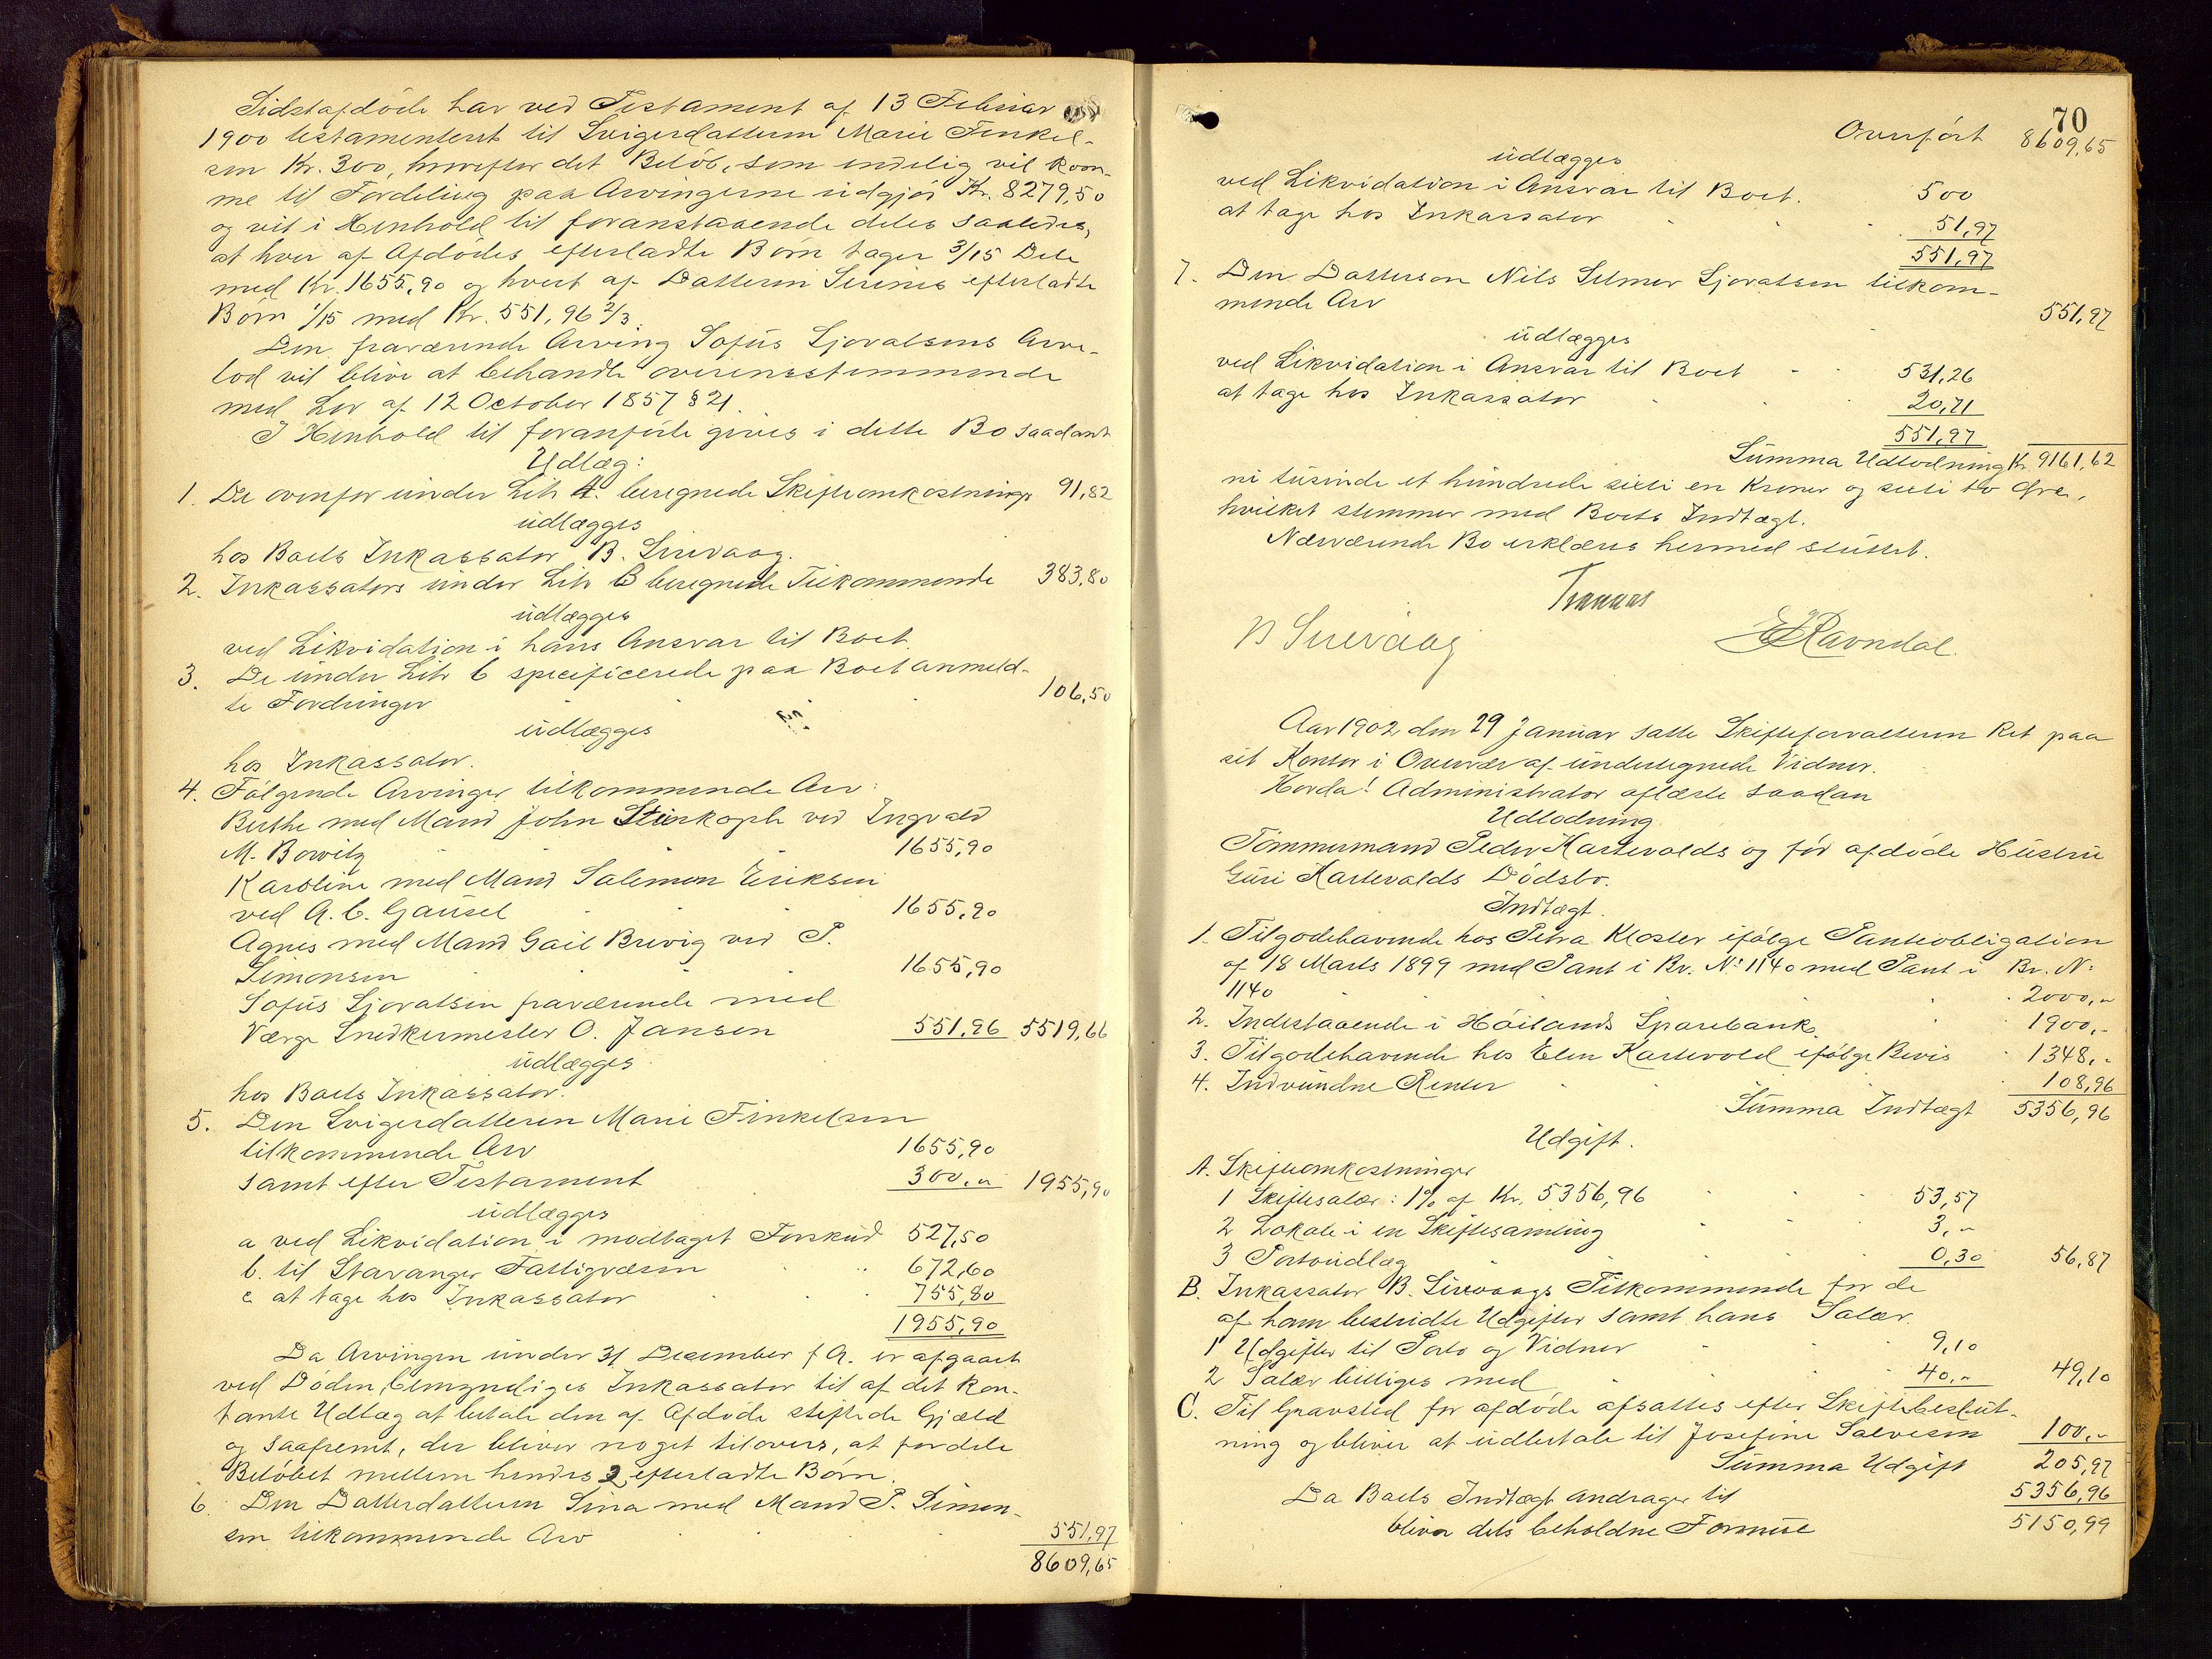 Sidstafdöde har ved Testament af 13 Februar
1900 testamenteret til Svigerdatteren Marie Finkel-
sen Kr. 300, hvorefter det Belöb, som endelig vil kom-
me til Fordeling paa Arvingerne udgjör Kr. 8279,50
og vil i Henhold til foranstaaende deles saaledes,
at hver af Afdödes efterladte Börn tager 3/15 Dele
med Kr. 1655,90 og hvert af Datteren Serines efterladte
Börn 1/15 med Kr. 551,96 2/3.
Den fraværende Arving Sofus Sjovalsens Arve-
lod vil blive at behandle overensstemmende
med Lov af 12 October 1857 § 21.
I Henhold til foranförte gives i dette Bo saadant
Udlæg:
1. De ovenfor under Litr A. beregnede Skifteomkostninger 91,82
udlægges
hos Boets Inkassator B. Sirevaag.
2. Inkassators under Litr B beregnede Tilkommende 383,80
udlægges
ved Likvidation i hans Ansvar til Boet.
3. De under Litr C specificerede paa Boet anmeld-
te Fordringer 106,50
udlægges
hos Inkassator.
4. Fölgende Arvinger tilkommende Arv:
Berthe med Mand John Stierkoph ved Ingvald
M. Bowitz 1655,90
Karoline med Mand Salemon Eriksen
ved A. C. Gausel 1655,90
Agnes med Mand Gail Brevig ved P.
Simonsen 1655,90
Sofus Sjovalsen fraværende med
Værge Snedkermester O. Jansen 551,96 5519,66
udlægges
hos Boets Inkassator.
5. Den Svigerdatteren Marie Finkelsen
tilkommende Arv 1655,90
samt efter Testament 300,„ 1955,90
udlægges
a ved Likvidation i modtaget Forskud 527,50
b. til Stavanger Fattigvæsen 672,60
c at tage hos Inkassator 755,80
1955,90
Da Arvingen under 31 December f A. er afgaaet
ved Döden, bemyndiges Inkassator til af det kon-
tante Udlæg at betale den af Afdöde stiftede Gjæld
og saafremt, der bliver noget tilovers, at fordele
Belöbet mellem hendes 2 efterladte Börn.
6. Den Datterdatteren Sina med Mand P. Simon-
sen tilkommende Arv 551,97
8609,65
70
Overfört 8609,65
udlægges
ved Likvidation i Ansvar til Boet. 500
at tage hos Inkassator 51,97
551,97
7. Den Dattersön Nils Selmer Sjovalsen tilkom-
mende Arv 551,97
udlægges
ved Likvidation i Ansvar til Boet 531,26
at tage hos Inkassator 20,71
551,97
Summa Udlodning Kr. 9161,62
ni tusinde et hundrede sexti en Kroner og sexti to Öre,
hvilket stemmer med Boets Indtægt.
Nærværende Bo erklæres hermed sluttet.
B Sirevaag
Ravndal.
Aar 1902 den 29 Januar satte Skifteforvalteren Ret paa
sit Kontor i Overvær af undertegnede Vidner.
Hvorda! Administrator oplæste saadan
Udlodning
Tömmermand Peder Hartevolds og för afdöde Hustru
Guri Hartevolds Dödsbo.
Indtægt.
1. Tilgodehavende hos Petra Kloster ifölge Panteobligation
af 18 Marts 1899 med Pant i Br. No 1140 med Pant i Br. No
1140 2000,„
2. Indestaaende i Höilands Sparebank 1900,-
3. Tilgodehavende hos Elen Hartevold ifölge Bevis 1348,-
4. Indvundne Renter 108,96
Summa Indtægt 5356,96
Udgift.
A. Skifteomkostninger
1 Skiftesalær: 1% af Kr. 5356,96 53,57
2 Lokale i en Skiftesamling 3,„
3 Portoudlæg 0,30 56,87
B. Inkassator B. Sirevaags Tilkommende for de
af ham bestridte Udgifter samt hans Salær.
1 Udgifter til Porto og Vidner 9,10
2 Salær billiges med 40,„ 49,10
C. Til Gravsted for afdöde afsattes efter Skiftebeslut-
ning og bliver at udbetale til Josefine Salvesen 100,„
Summa Udgift 205,97
Da Boets Indtægt andrager til 5356,96
bliver dets beholdne Formue 5150,99